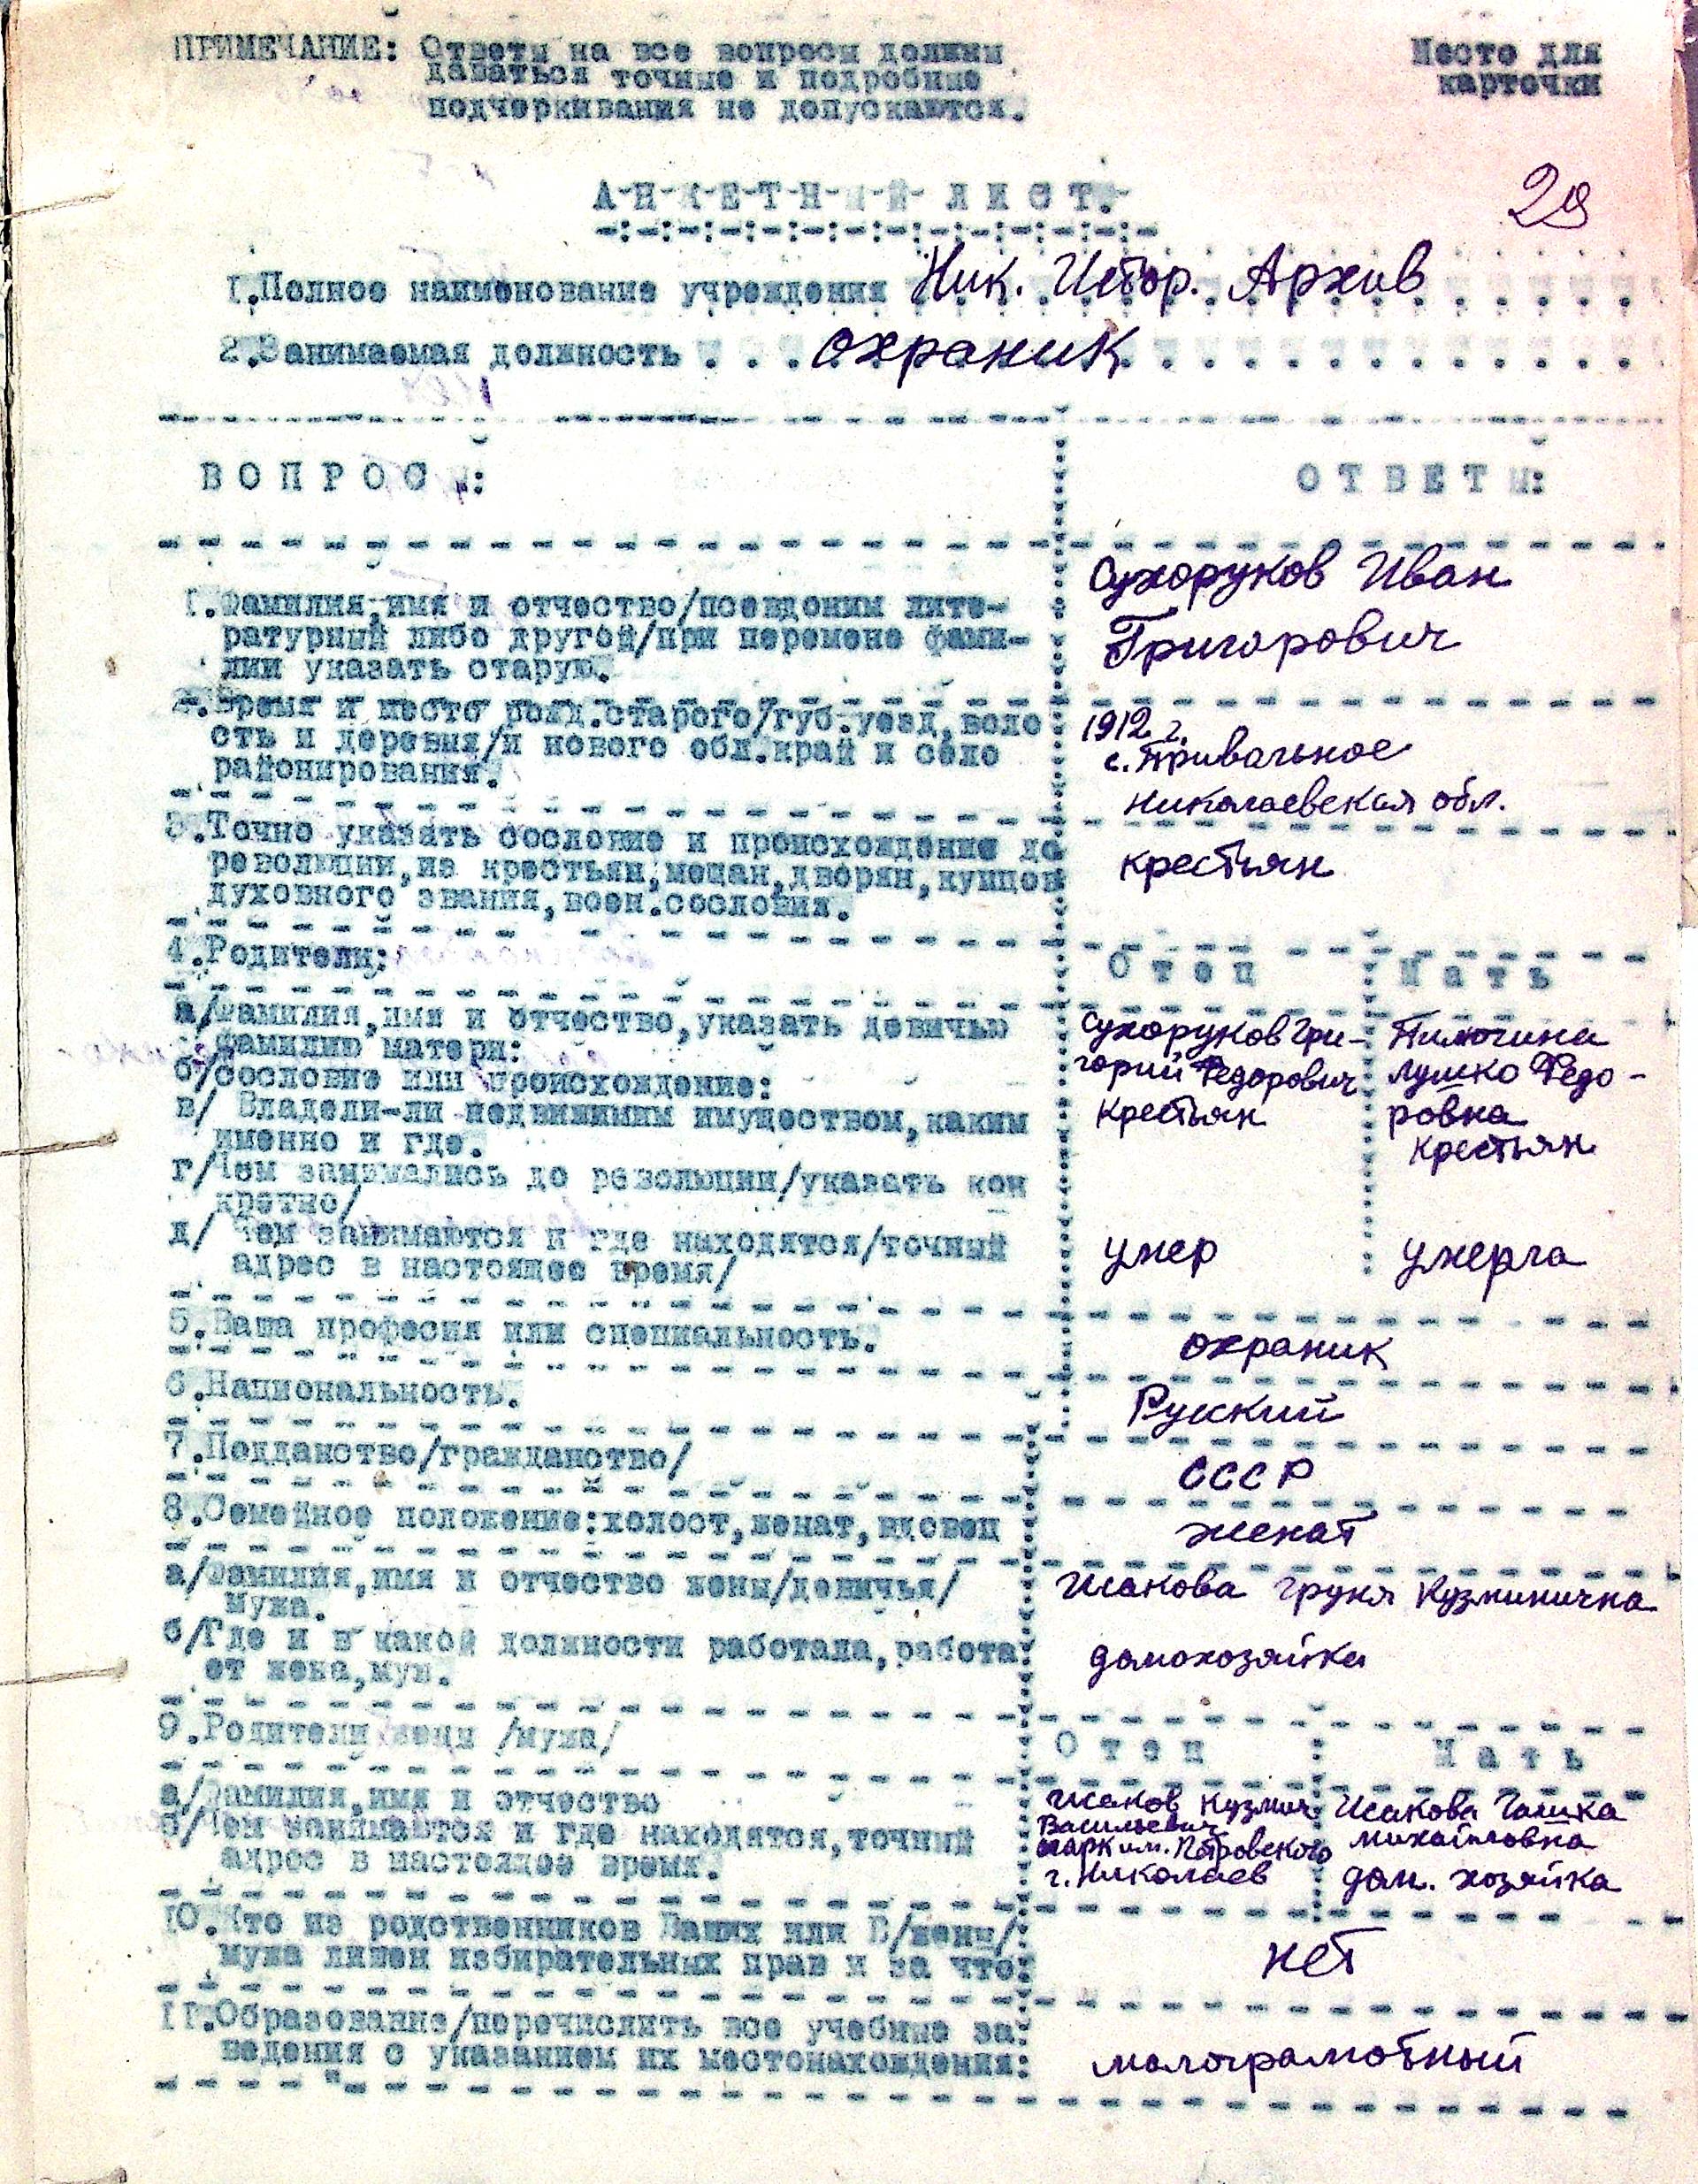 ПРИМЕЧАНИЕ: Ответы на все вопросы должны
даваться точные и подробные
подчеркивания не допускаются.
Место для
карточки
29
А-Н-К-Е-Т-Н-Ы-Й- Л И С Т.-
I.Полное наименование учреждения Ник. Истор. Архив
2.Занимаемая должность . . . охраник
В О П Р О С Ы:
О Т В Е Т Ы:
I.Фамилия,имя и отчество/псевдоним лите-
ратурный либо другой/при перемене фами-
лии указать старую.
Сухоруков Иван
Григорович
2.Время и место рожд.старого/губ.уезд,воло
сть и деревня/и нового обл.край и село
районирования.
1912 г.
с. Привольное
Николаевская обл.
3.Точно указать сословие и происхождение до
революции,из крестьян,мещан,дворян,купцов
духовного звания,воен.сословия.
крестьян
4.Родители:
О т е ц
М а т ь
а/Фамилия,имя и отчество,указать девичью
фамилию матери:
б/сословие или происхождение:
в/ Владели-ли недвижимым имуществом,каким
именно и где.
г/Чем занимались до революции/указать кон
кретно/
д/ Чем занимаются и где находятся/точный
адрес в настоящее время/
Сухоруков Гри-
горий Федорович
крестьян
умер
Федо-
ровна
крестьян
умерла
5.Ваша професия или специальность.
охраник
6.Национальность.
Руский
7.Подданство/гражданство/
СССР
8.Семейное положение:холост,женат,вдовец
женат
а/Фамилия,имя и отчество жены/девичья/
мужа.
Исакова Груня Кузминична
б/Где и в какой должности работала,работа
ет жена,муж.
домохозяйка
9.Родители жены /мужа/
О т е ц
М а т ь
а/Фамилия,имя и отчество
б/Чем занимаются и где находятся,точный
адрес в настоящее время.
Исаков Кузмич
Васильевич
парк им. Петровского
г. Николаев
Исакова
михайловна
дом. хозяйка
IO.Кто из родственников Ваших или В/жены/
мужа лишен избирательных прав и за что:
нет
II.Образование/перечислить все учебные за
ведения с указанием их местонахождения:
малограмотный